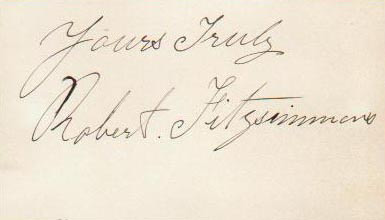 Yours Truly
Robert. Fitzsimmons